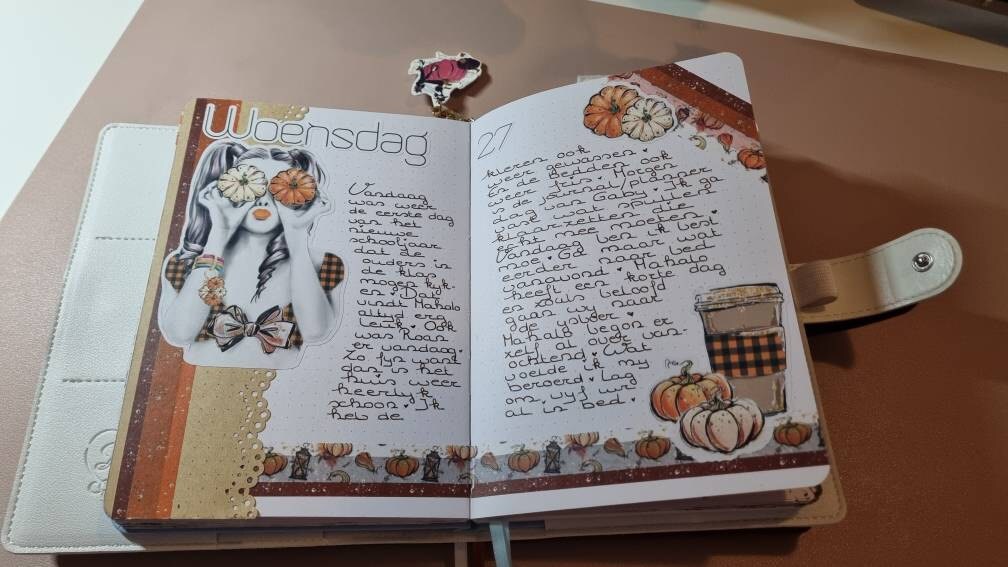 Woensdag
Vandaag
was weer
de eerste dag
van het
nieuwe
schooljaar
dat de
ouders in
de klas
mogen kyk-
en. Dat
vindt Mahalo
altyd erg
leuk. Ook
was Roan
er vandaag.
Zo fyn want
dan is het
huis weer
heerlyk
schoon. Ik
heb de
27
kleren ook
weer gewassen.
En de bedden ook
weer fris. Morgen
is de journal/planner
dag van Gabi. Ik ga
vast wat spullen
klaarzetten die
echt mee moeten.
Vandaag ben ik best
moe. Ga maar wat
eerder naar bed
vanavond. Mahalo
heeft een korte dag
en zoals beloofd
gaan wy naar
de vyver.
Mahalo begon er
zelf al over van-
ochtend. Wat
voelde ik my
beroerd. Lag
om vyf uur
al in bed.